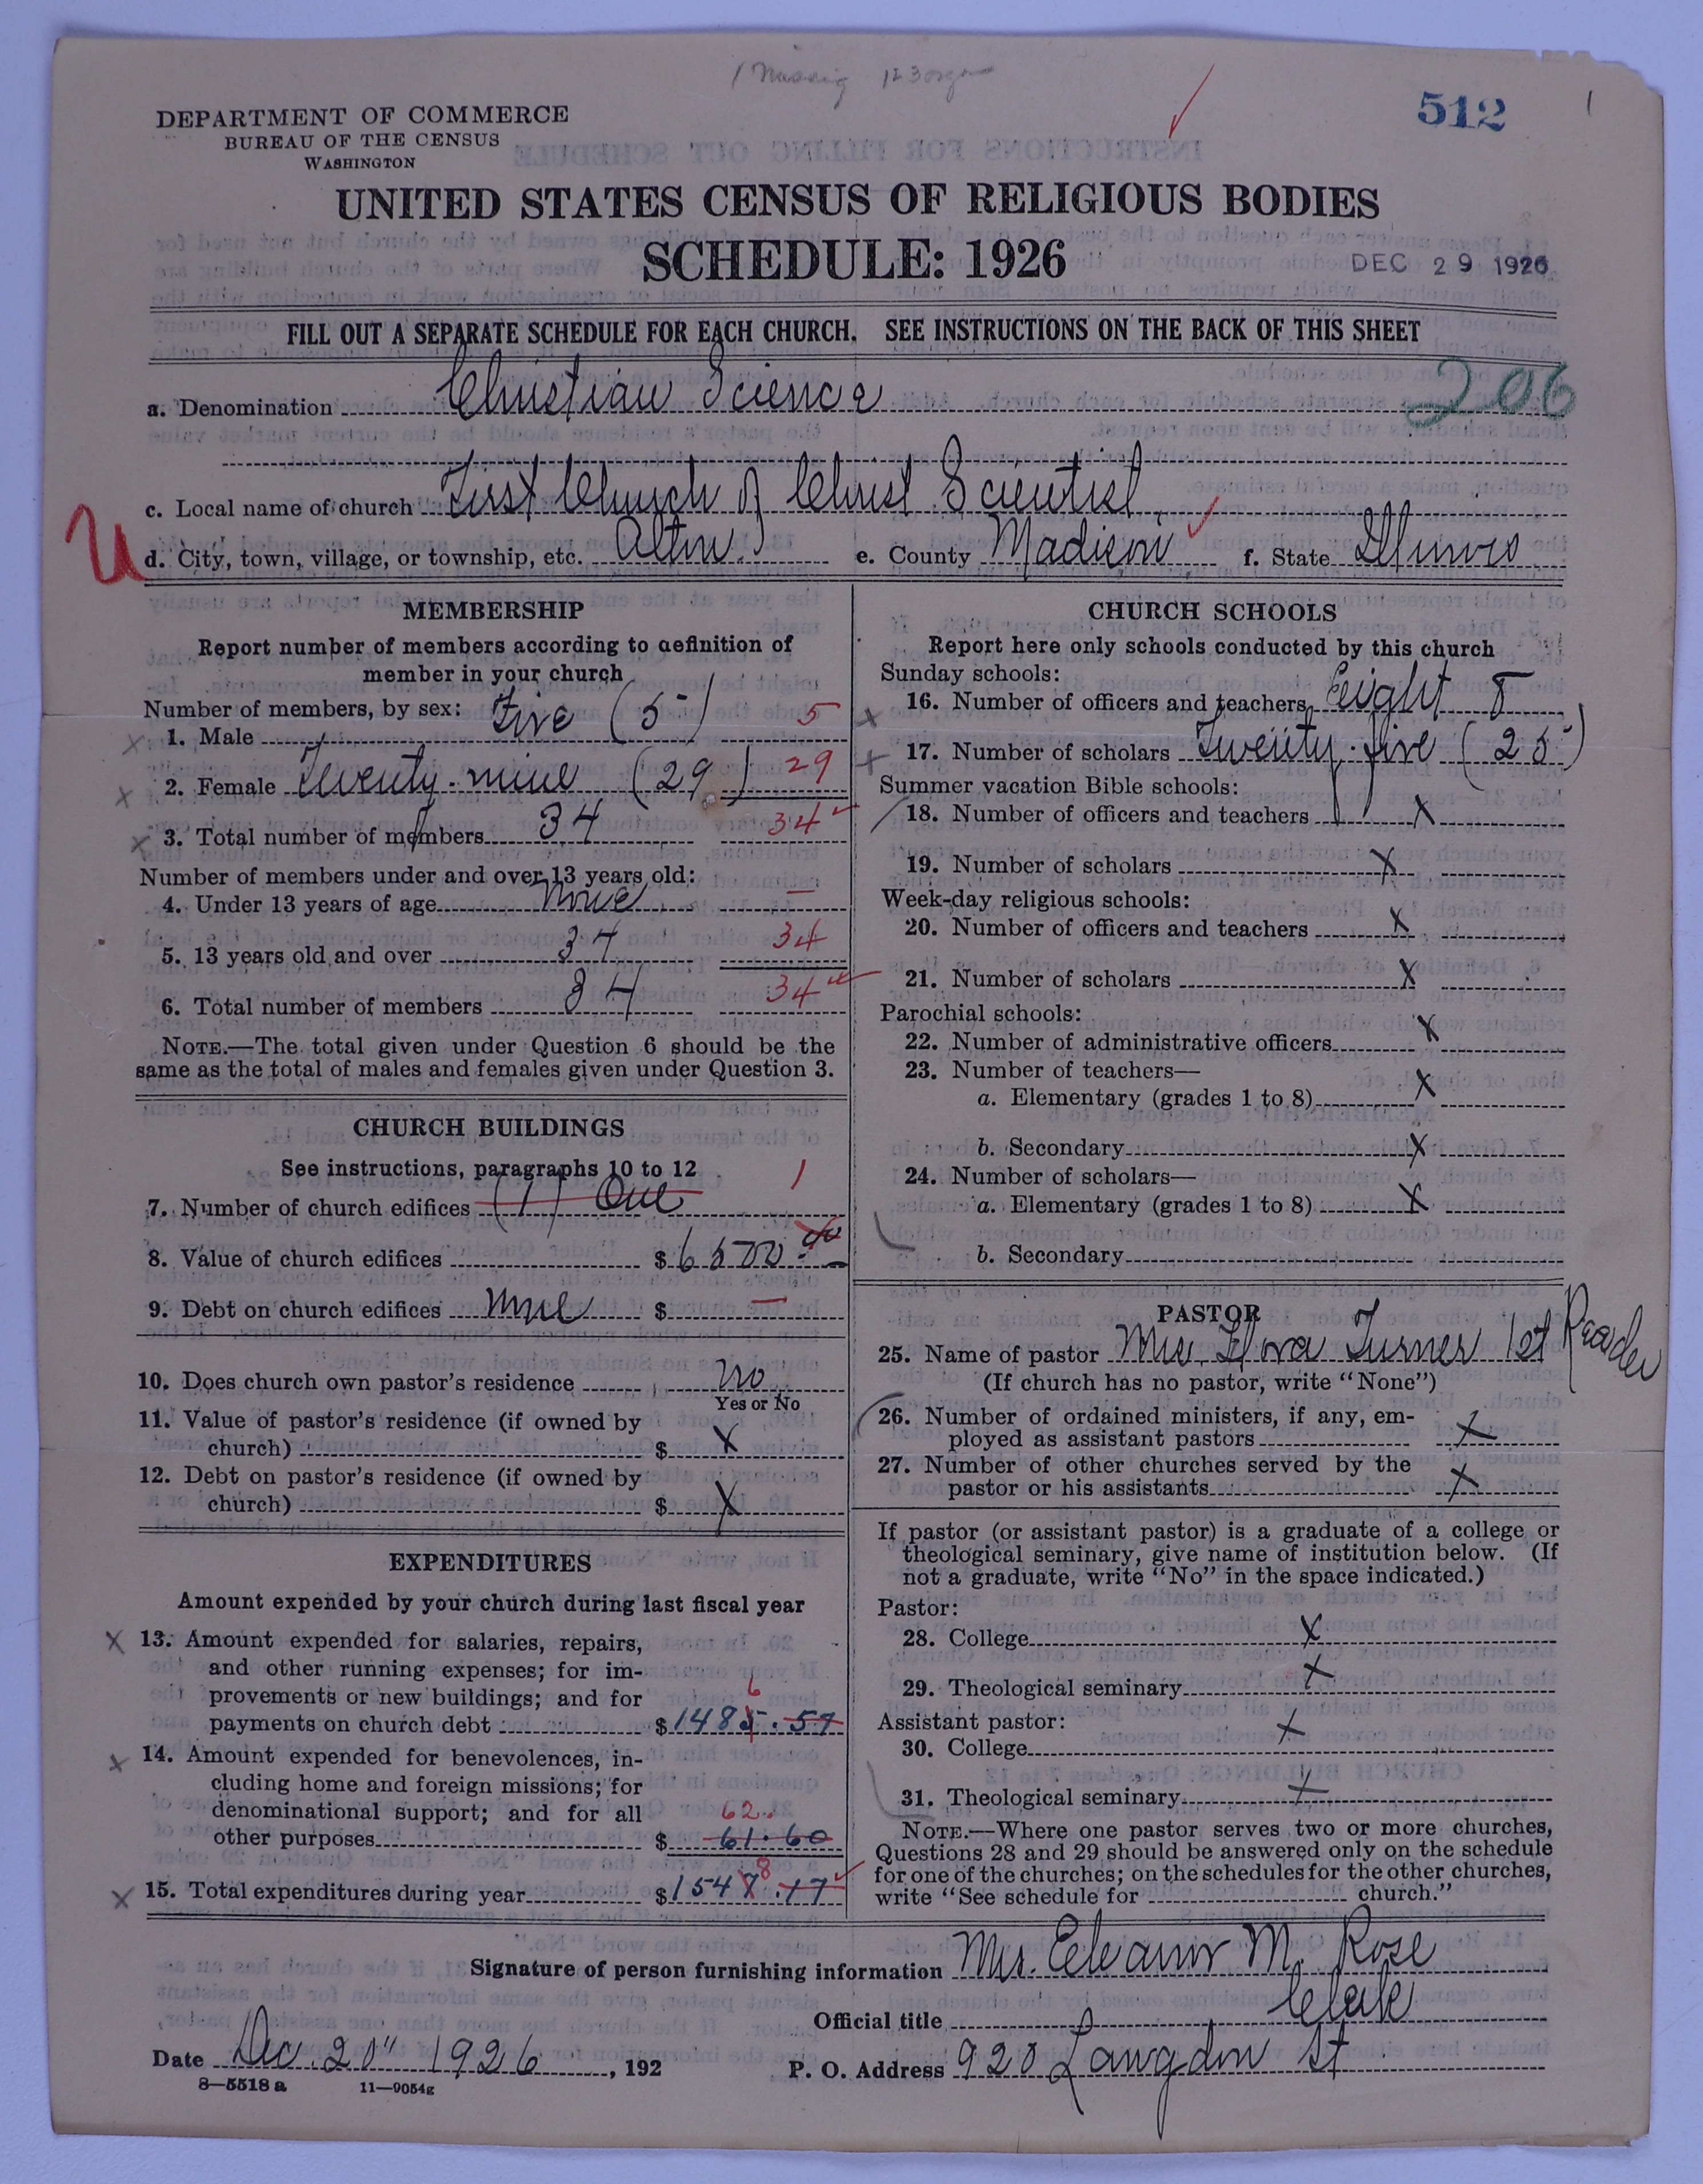 512
DEPARTMENT OF COMMERCE
BUREAU OF THE CENSUS
WASHINGTON
UNITED STATES CENSUS OF RELIGIOUS BODIES
SCHEDULE: 1926
DEC 29 1926
FILL OUT A SEPARATE SCHEDULE FOR EACH CHURCH. SEE INSTRUCTIONS ON THE BACK OF THIS SHEET
a. Denomination Christian Science 206
c. Local name of church First Church of Christ Scientist
U
d. City, town, village, or township, etc. Alton. e. County Madison f. State Illinois
MEMBERSHIP
Report number of members according to definition of
member in your church
Number of members, by sex:
1. Male Five (5) 5
2. Female Twenty-nine (29) 29
3. Total number of members 34 34
Number of members under and over 13 years old:
4. Under 13 years of age None —
5. 13 years old and over 34 34
6. Total number of members 34 34
NOTE.—The total given under Question 6 should be the
same as the total of males and females given under Question 3.
CHURCH BUILDINGS
See instructions, paragraphs 10 to 12
7. Number of church edifices (1) One 1
8. Value of church edifices $6500.00
9. Debt on church edifices None $ —
10. Does church own pastor's residence No
Yes or No
11. Value of pastor's residence (if owned by
church) $ X
12. Debt on pastor's residence (if owned by
church) $ X
EXPENDITURES
Amount expended by your church during last fiscal year
X 13. Amount expended for salaries, repairs,
and other running expenses; for im-
provements or new buildings; and for
6
payments on church debt $1485.57
X 14. Amount expended for benevolences, in-
cluding home and foreign missions; for
denominational support; and for all 62.
other purposes $ 61.60
8
X 15. Total expenditures during year $1547.17
CHURCH SCHOOLS
Report here only schools conducted by this church
Sunday schools:
16. Number of officers and teachers Eight 8
17. Number of scholars Twenty-five (25)
Summer vacation Bible schools:
18. Number of officers and teachers X
19. Number of scholars X
Week-day religious schools:
20. Number of officers and teachers X
21. Number of scholars X
Parochial schools:
22. Number of administrative officers X
23. Number of teachers—
a. Elementary (grades 1 to 8) X
b. Secondary X
24. Number of scholars—
a. Elementary (grades 1 to 8) X
b. Secondary
PASTOR
25. Name of pastor Mrs. Flora Turner 1st Reader
(If church has no pastor, write "None")
26. Number of ordained ministers, if any, em-
ployed as assistant pastors X
27. Number of other churches served by the
pastor or his assistants X
If pastor (or assistant pastor) is a graduate of a college or
theological seminary, give name of institution below. (If
not a graduate, write "No" in the space indicated.)
Pastor:
28. College X
29. Theological seminary X
Assistant pastor:
30. College X
31. Theological seminary X
NOTE.—Where one pastor serves two or more churches,
Questions 28 and 29 should be answered only on the schedule
for one of the churches; on the schedules for the other churches,
write "See schedule for church."
Signature of person furnishing information Mrs. Eleanor M. Rose
Official title Clerk
Date Dec. 20" 1926, 192 P. O. Address 920 Langdon St
8—5518 a 11—9054g